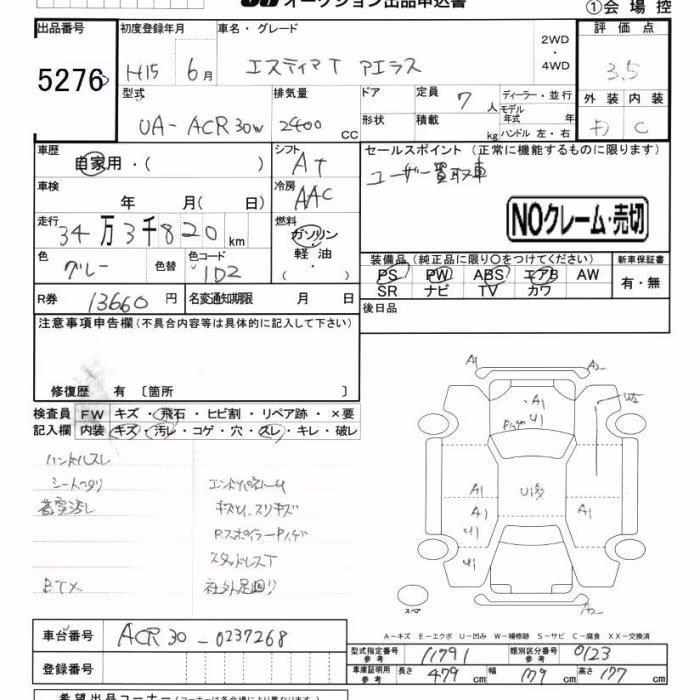 オークション出品申込書
①会場控
出品番号 初度登録年月 車名・グレード 2WD・4WD 評価点
5276 H15 6月 エスティマT アエラス 3.5
型式 排気量 ドア 定員 7人 ディーラー・並行 外装 内装
UA-ACR30W 2400 CC 形状 積載 kg モデル年式 年 C
ハンドル 左・右
車歴 自家用・( ) シフト AT セールスポイント (正常に機能するものに限ります)
ユーザー買取車
車検 年 月( 日) 冷房 AAC
NOクレーム・売切
走行 34万3千820km 燃料 ガソリン・軽油・( )
色 グレー 色替 色コード 1D2
装備品(純正品に限り○をつけてください) 新車保証書
PS PW ABS エアB AW 有・無
SR ナビ TV カワ
R券 13660円 名変通知期限 月 日 後日品
注意事項申告欄(不具合内容等は具体的に記入して下さい)
修復歴 有 〔箇所 〕
検査員 FW キズ・飛石・ヒビ割・リペア跡・×要
記入欄 内装 キズ・汚レ・コゲ・穴・スレ・キレ・破レ
ハンドルスレ
シートヘタリ
エンドパネルU
キズU、スリキズ
スタッドレスT
社外足回り
A1 A2
A1
U1
W2
A1 U1多 A1
A1
U1
U1
A2
スペア
A-キズ E-エクボ U-凹み W-補修跡 S-サビ C-腐食 XX-交換済
車台番号 ACR30-0237268
型式指定番号 参考 11791 類別区分番号 参考 0123
登録番号
車庫証明用 参考 長さ 479cm 幅 179cm 高さ 177cm
希望出品コーナー